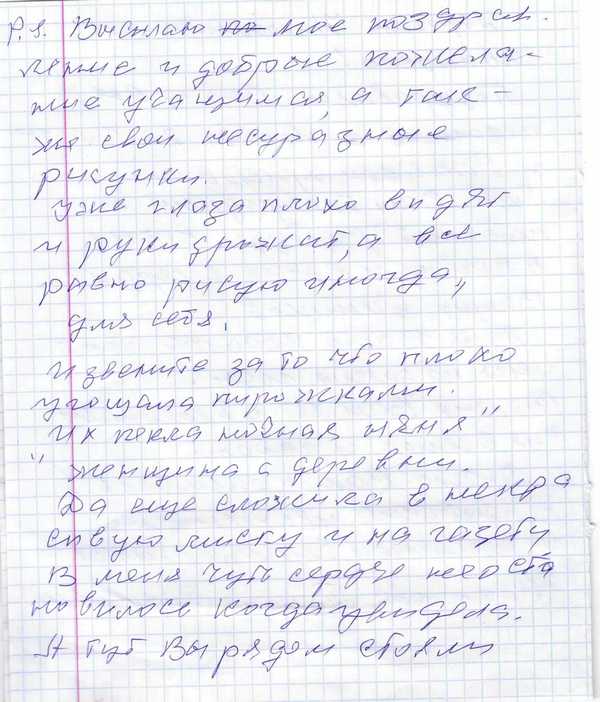 P.S. Высылаю по мое поздрав-
ление и доброе пожела-
ние учащимся, а так-
же свои несуразные
рисунки.
Уже глаза плохо видят
и руки дрожат, а все
равно рисую иногда,,
для себя.
Извените за то что плохо
угощала пирожками.
Их пекла ночная няня"
"женщина с деревни.
Да еще сложила в некра
сивую миску и на газету
В меня чуть сердце не оста
новилось когда увидела.
А тут Вы рядом стояли